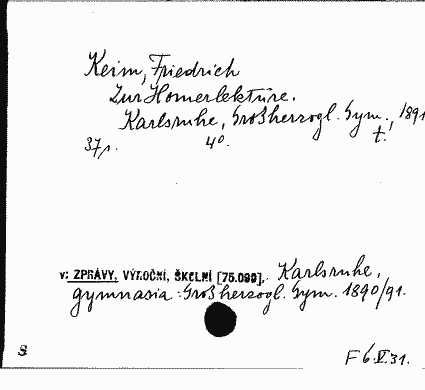 Keim, Friedrich
Zur Homerlektüre.
Karlsruhe, Großherzogl. Gym., 1891
t.
37 s. 4°.
v: ZPRÁVY, VÝROČNÍ, ŠKELNÍ [75.099], Karlsruhe,
gymnasia: Großherzogl. Gym. 1890/91.
S
F 6.V.31.